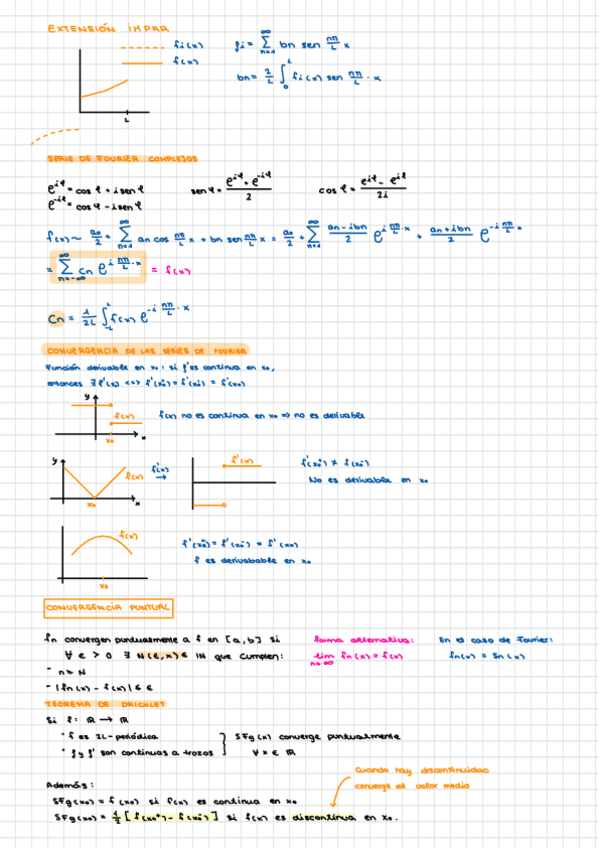 EXTENSIÓN IMPAR
fi(x)
f(x)
fi = ∞ Σ n=1 bn sen nπ/L x
bn = 2/L ∫ 0 L fi(x) sen nπ/L · x
L
SERIE DE FOURIER COMPLEJOS
e^iφ = cos φ + i sen φ
e^-iφ = cos φ - i sen φ
sen φ = e^iφ + e^-iφ / 2
cos φ = e^iφ - e^iφ / 2i
f(x) ~ a0/2 + ∞ Σ n=1 an cos nπ/L x + bn sen nπ/L x = a0/2 + ∞ Σ n=1 an - ibn / 2 e^i nπ/L · x + an + ibn / 2 e^-i nπ/L · x
= ∞ Σ n=-∞ Cn e^i nπ/L · x = f(x)
Cn = 1/2L ∫ -L L f(x) e^-i nπ/L · x
CONVERGENCIA DE LAS SERIES DE FOURIER
Función derivable en x0: si f es continua en x0,
entonces ∃ f'(x) <=> f'(x0+) = f'(x0-) = f'(x0)
y
f(x)
x0
x
f(x) no es continua en x0 => no es derivable
y
f(x)
x0
x
f'(x)
→
f'(x)
f'(x0+) ≠ f(x0-)
No es derivable en x0
f(x)
x0
f'(x0+) = f'(x0-) = f'(x0)
f es derivabable en x0
CONVERGENCIA PUNTUAL
fn convergen puntualmente a f en [a,b] si
∀ ε > 0 ∃ N(ε,x) ∈ IN que cumplen:
- n > N
- |fn(x) - f(x)| ≤ ε
forma alternativa:
lim n→∞ fn(x) = f(x)
En el caso de Fourier:
fn(x) = Sn(x)
TEOREMA DE DRICHLET
Si f: IR → IR
· f es 2L-periódica
· f y f' son continuas a trozos
SFg(x) converge puntualmente
∀ x ∈ IR
Además:
SFg(x0) = f(x0) si f(x) es continua en x0
SFg(x0) = 1/2 [f(x0+) - f(x0-)] si f(x) es discontinua en x0.
Cuando hay discontinuidad
converge al valor medio